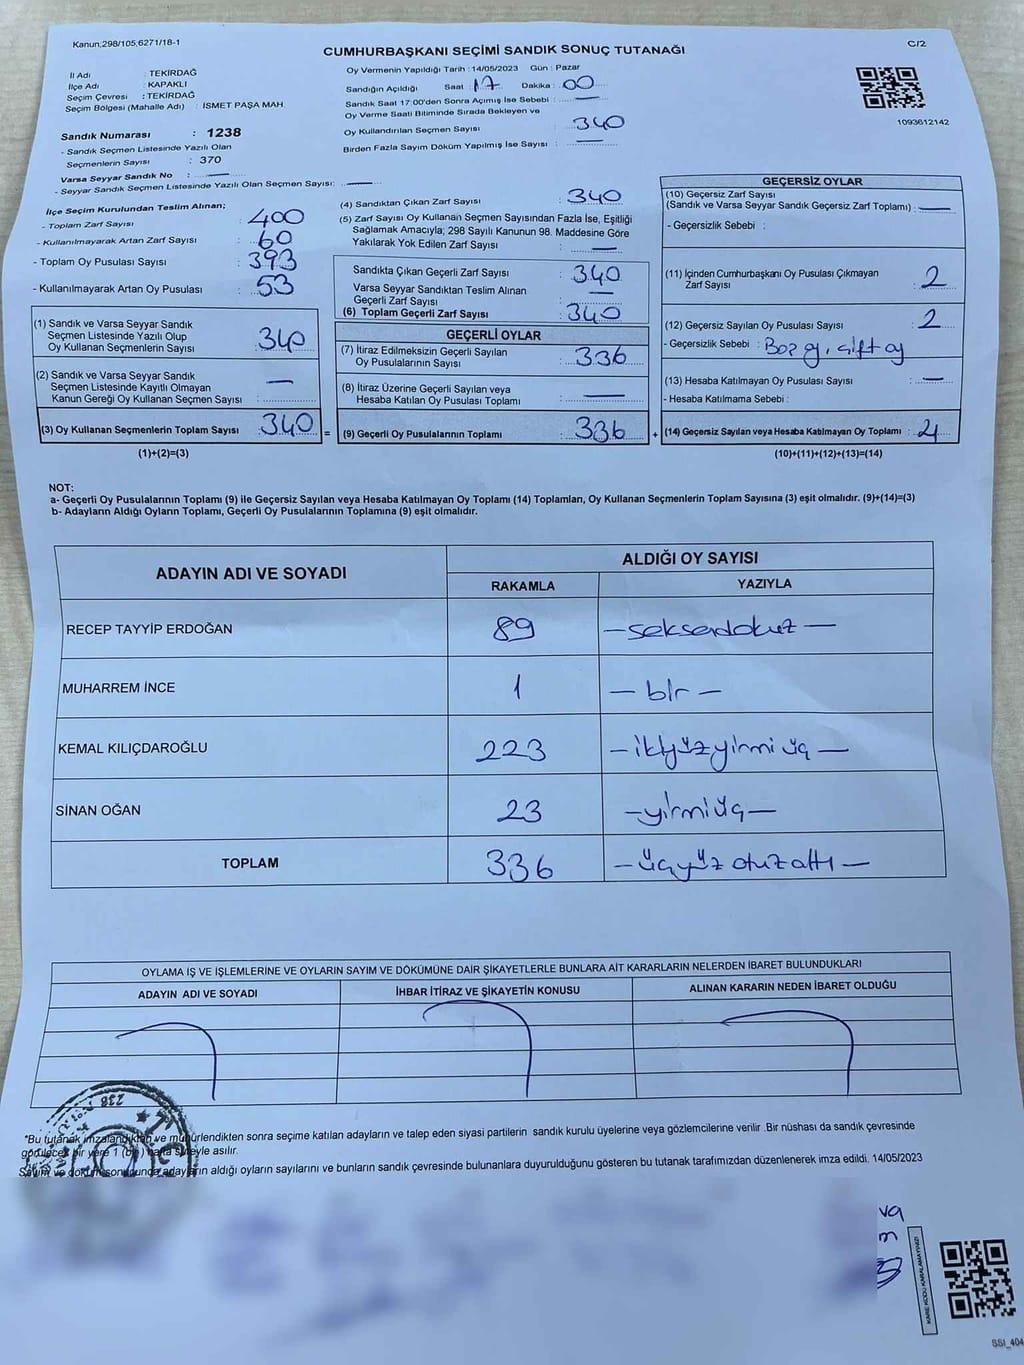 Kanun;298/105;6271/18-1
C/2
CUMHURBAŞKANI SEÇİMİ SANDIK SONUÇ TUTANAĞI
İl Adı : TEKİRDAĞ
İlçe Adı : KAPAKLI
Seçim Çevresi : TEKİRDAĞ
Seçim Bölgesi (Mahalle Adı) : İSMET PAŞA MAH.
Oy Vermenin Yapıldığı Tarih : 14/05/2023 Gün : Pazar
Sandığın Açıldığı Saat : 17 Dakika : 00
Sandık Saat 17:00'den Sonra Açımış İse Sebebi : —
Oy Verme Saati Bitiminde Sırada Bekleyen ve
Oy Kullandırılan Seçmen Sayısı : 340
Birden Fazla Sayım Döküm Yapılmış İse Sayısı : —
1093612142
Sandık Numarası : 1238
- Sandık Seçmen Listesinde Yazılı Olan
Seçmenlerin Sayısı : 370
Varsa Seyyar Sandık No : —
- Seyyar Sandık Seçmen Listesinde Yazılı Olan Seçmen Sayısı: —
İlçe Seçim Kurulundan Teslim Alınan;
- Toplam Zarf Sayısı : 400
- Kullanılmayarak Artan Zarf Sayısı : 60
- Toplam Oy Pusulası Sayısı : 393
- Kullanılmayarak Artan Oy Pusulası : 53
(1) Sandık ve Varsa Seyyar Sandık
Seçmen Listesinde Yazılı Olup
Oy Kullanan Seçmenlerin Sayısı : 340
(2) Sandık ve Varsa Seyyar Sandık
Seçmen Listesinde Kayıtlı Olmayan
Kanun Gereği Oy Kullanan Seçmen Sayısı : —
(3) Oy Kullanan Seçmenlerin Toplam Sayısı : 340 =
(1)+(2)=(3)
(4) Sandıktan Çıkan Zarf Sayısı : 340
(5) Zarf Sayısı Oy Kullanan Seçmen Sayısından Fazla İse, Eşitliği
Sağlamak Amacıyla; 298 Sayılı Kanunun 98. Maddesine Göre
Yakılarak Yok Edilen Zarf Sayısı : —
Sandıkta Çıkan Geçerli Zarf Sayısı : 340
Varsa Seyyar Sandıktan Teslim Alınan
Geçerli Zarf Sayısı : —
(6) Toplam Geçerli Zarf Sayısı : 340
GEÇERLİ OYLAR
(7) İtiraz Edilmeksizin Geçerli Sayılan
Oy Pusulalarının Sayısı : 336
(8) İtiraz Üzerine Geçerli Sayılan veya
Hesaba Katılan Oy Pusulası Toplamı : —
(9) Geçerli Oy Pusulalarının Toplamı : 336 +
GEÇERSİZ OYLAR
(10) Geçersiz Zarf Sayısı
(Sandık ve Varsa Seyyar Sandık Geçersiz Zarf Toplamı) : —
- Geçersizlik Sebebi :
(11) İçinden Cumhurbaşkanı Oy Pusulası Çıkmayan
Zarf Sayısı : 2
(12) Geçersiz Sayılan Oy Pusulası Sayısı : 2
- Geçersizlik Sebebi : Boş oy, çift oy
(13) Hesaba Katılmayan Oy Pusulası Sayısı : —
- Hesaba Katılmama Sebebi :
(14) Geçersiz Sayılan veya Hesaba Katılmayan Oy Toplamı : 4
(10)+(11)+(12)+(13)=(14)
NOT:
a- Geçerli Oy Pusulalarının Toplamı (9) ile Geçersiz Sayılan veya Hesaba Katılmayan Oy Toplamı (14) Toplamları, Oy Kullanan Seçmenlerin Toplam Sayısına (3) eşit olmalıdır. (9)+(14)=(3)
b- Adayların Aldığı Oyların Toplamı, Geçerli Oy Pusulalarının Toplamına (9) eşit olmalıdır.
ADAYIN ADI VE SOYADI ALDIĞI OY SAYISI
RAKAMLA YAZIYLA
RECEP TAYYİP ERDOĞAN 89 — seksendokuz —
MUHARREM İNCE 1 — bir —
KEMAL KILIÇDAROĞLU 223 — ikiyüzyirmi üç —
SİNAN OĞAN 23 — yirmiüç —
TOPLAM 336 — üçyüz otuzaltı —
OYLAMA İŞ VE İŞLEMLERİNE VE OYLARIN SAYIM VE DÖKÜMÜNE DAİR ŞİKAYETLERLE BUNLARA AİT KARARLARIN NELERDEN İBARET BULUNDUKLARI
ADAYIN ADI VE SOYADI İHBAR İTİRAZ VE ŞİKAYETİN KONUSU ALINAN KARARIN NEDEN İBARET OLDUĞU
*Bu tutanak imzalandıktan ve mühürlendikten sonra seçime katılan adayların ve talep eden siyasi partilerin sandık kurulu üyelerine veya gözlemcilerine verilir. Bir nüshası da sandık çevresinde
görülecek bir yere 1 (bir) hafta süreyle asılır.
Sayım ve döküm sonucunda adayların aldığı oyların sayılarını ve bunların sandık çevresinde bulunanlara duyurulduğunu gösteren bu tutanak tarafımızdan düzenlenerek imza edildi. 14/05/2023
va
KARE KODU KARALAMAYINIZ!
SSI_404